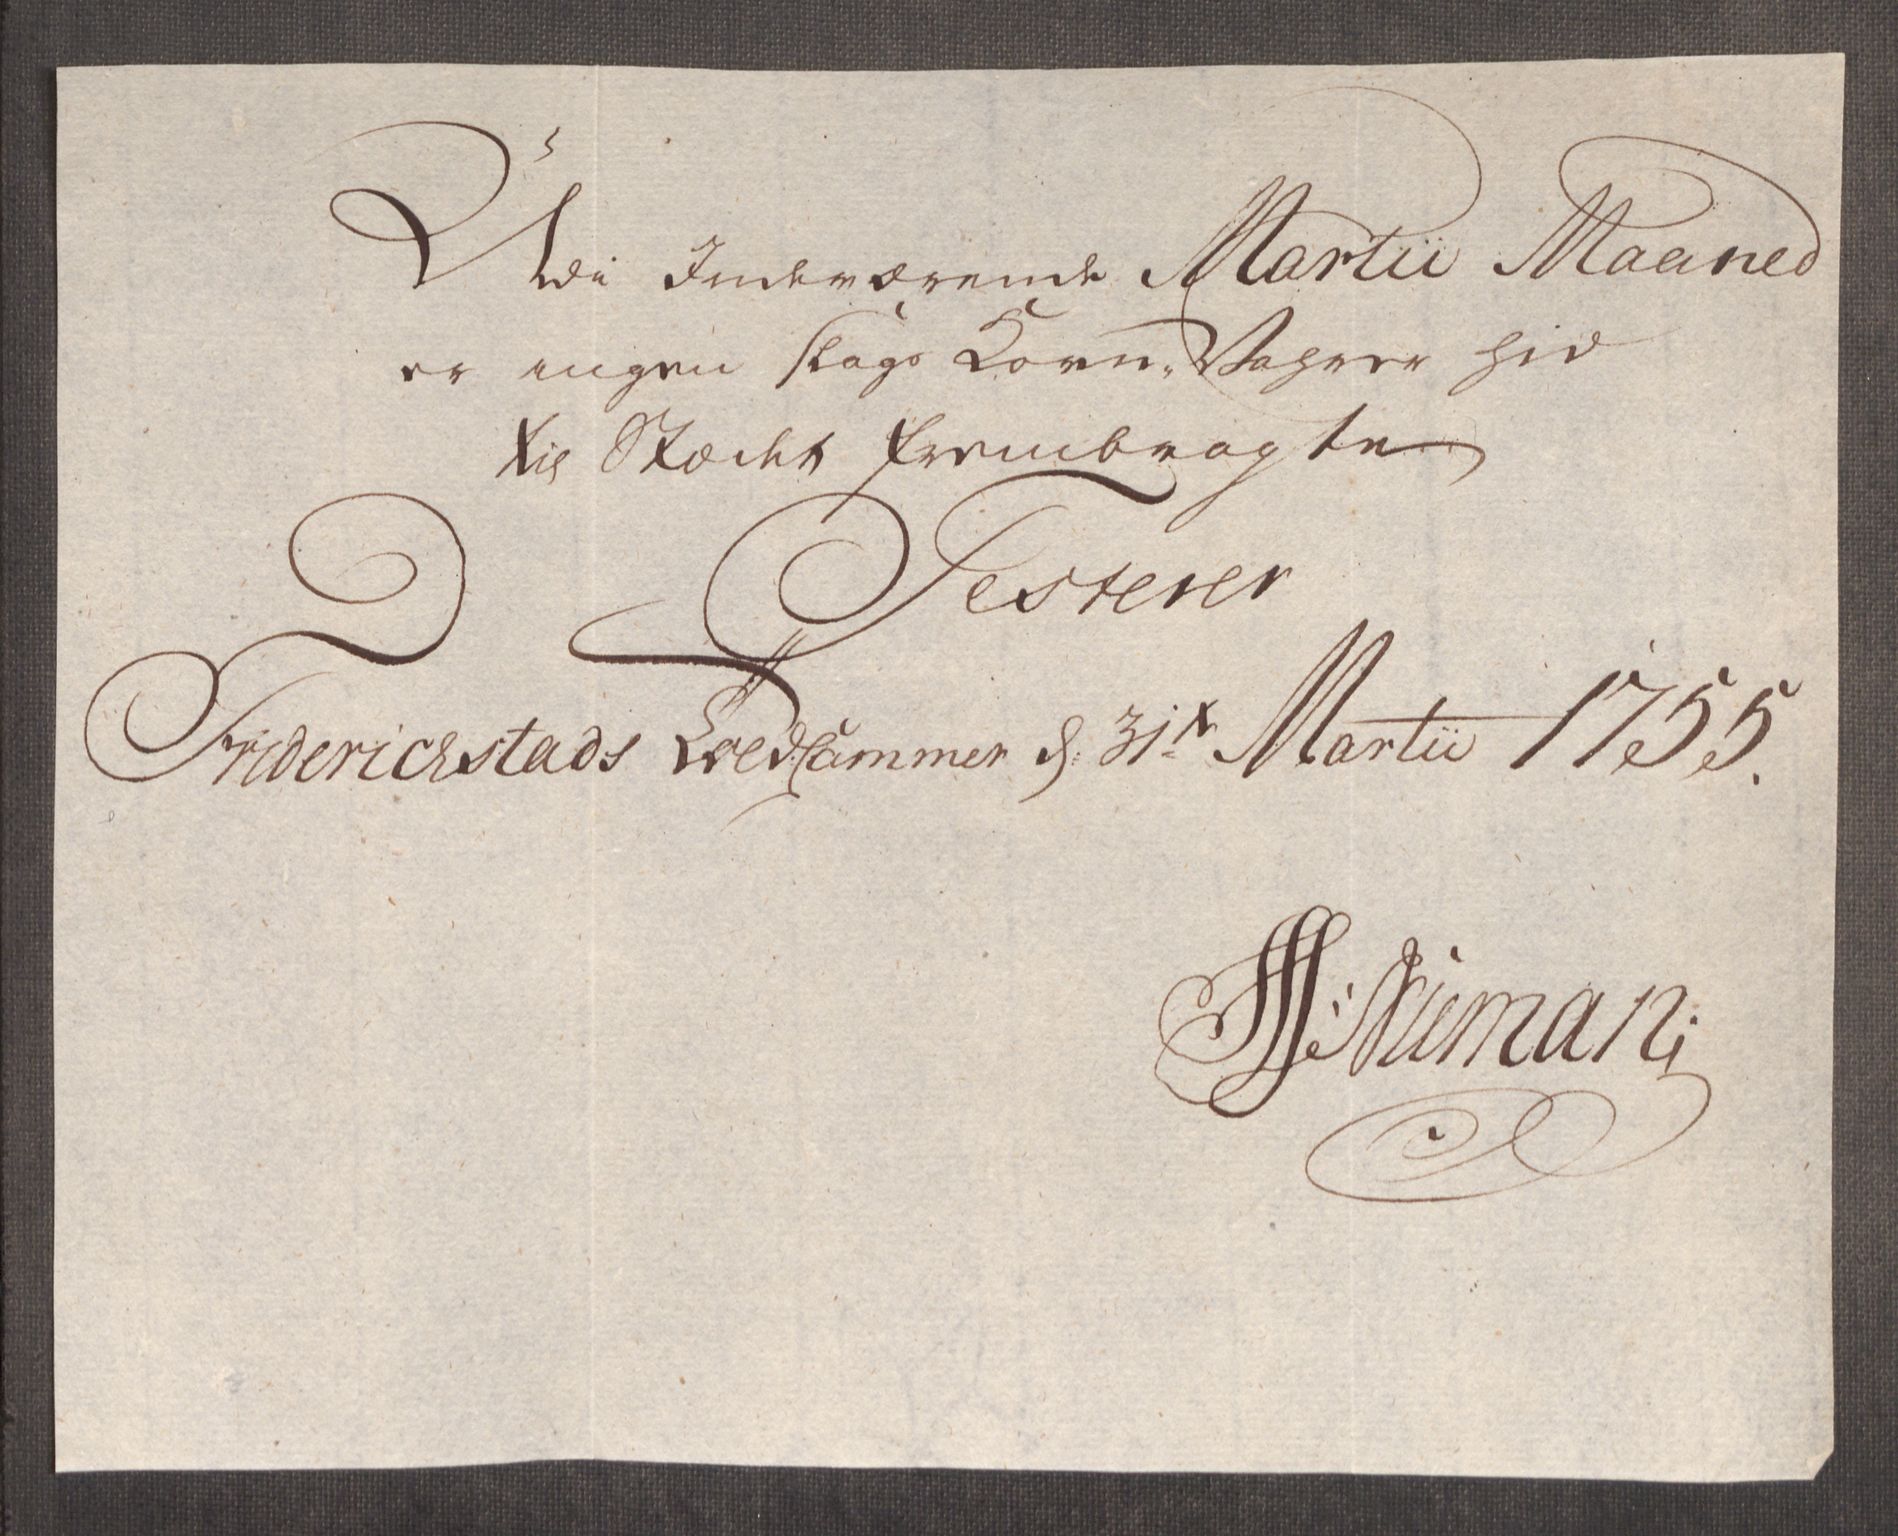 Udi Indeværende Martii Maaned
er ingen slags Korn-Vahrer hid
til Stædet frembragte
Testerer
Friderichstads Toldcammer d: 31te Martii 1755.
Numan